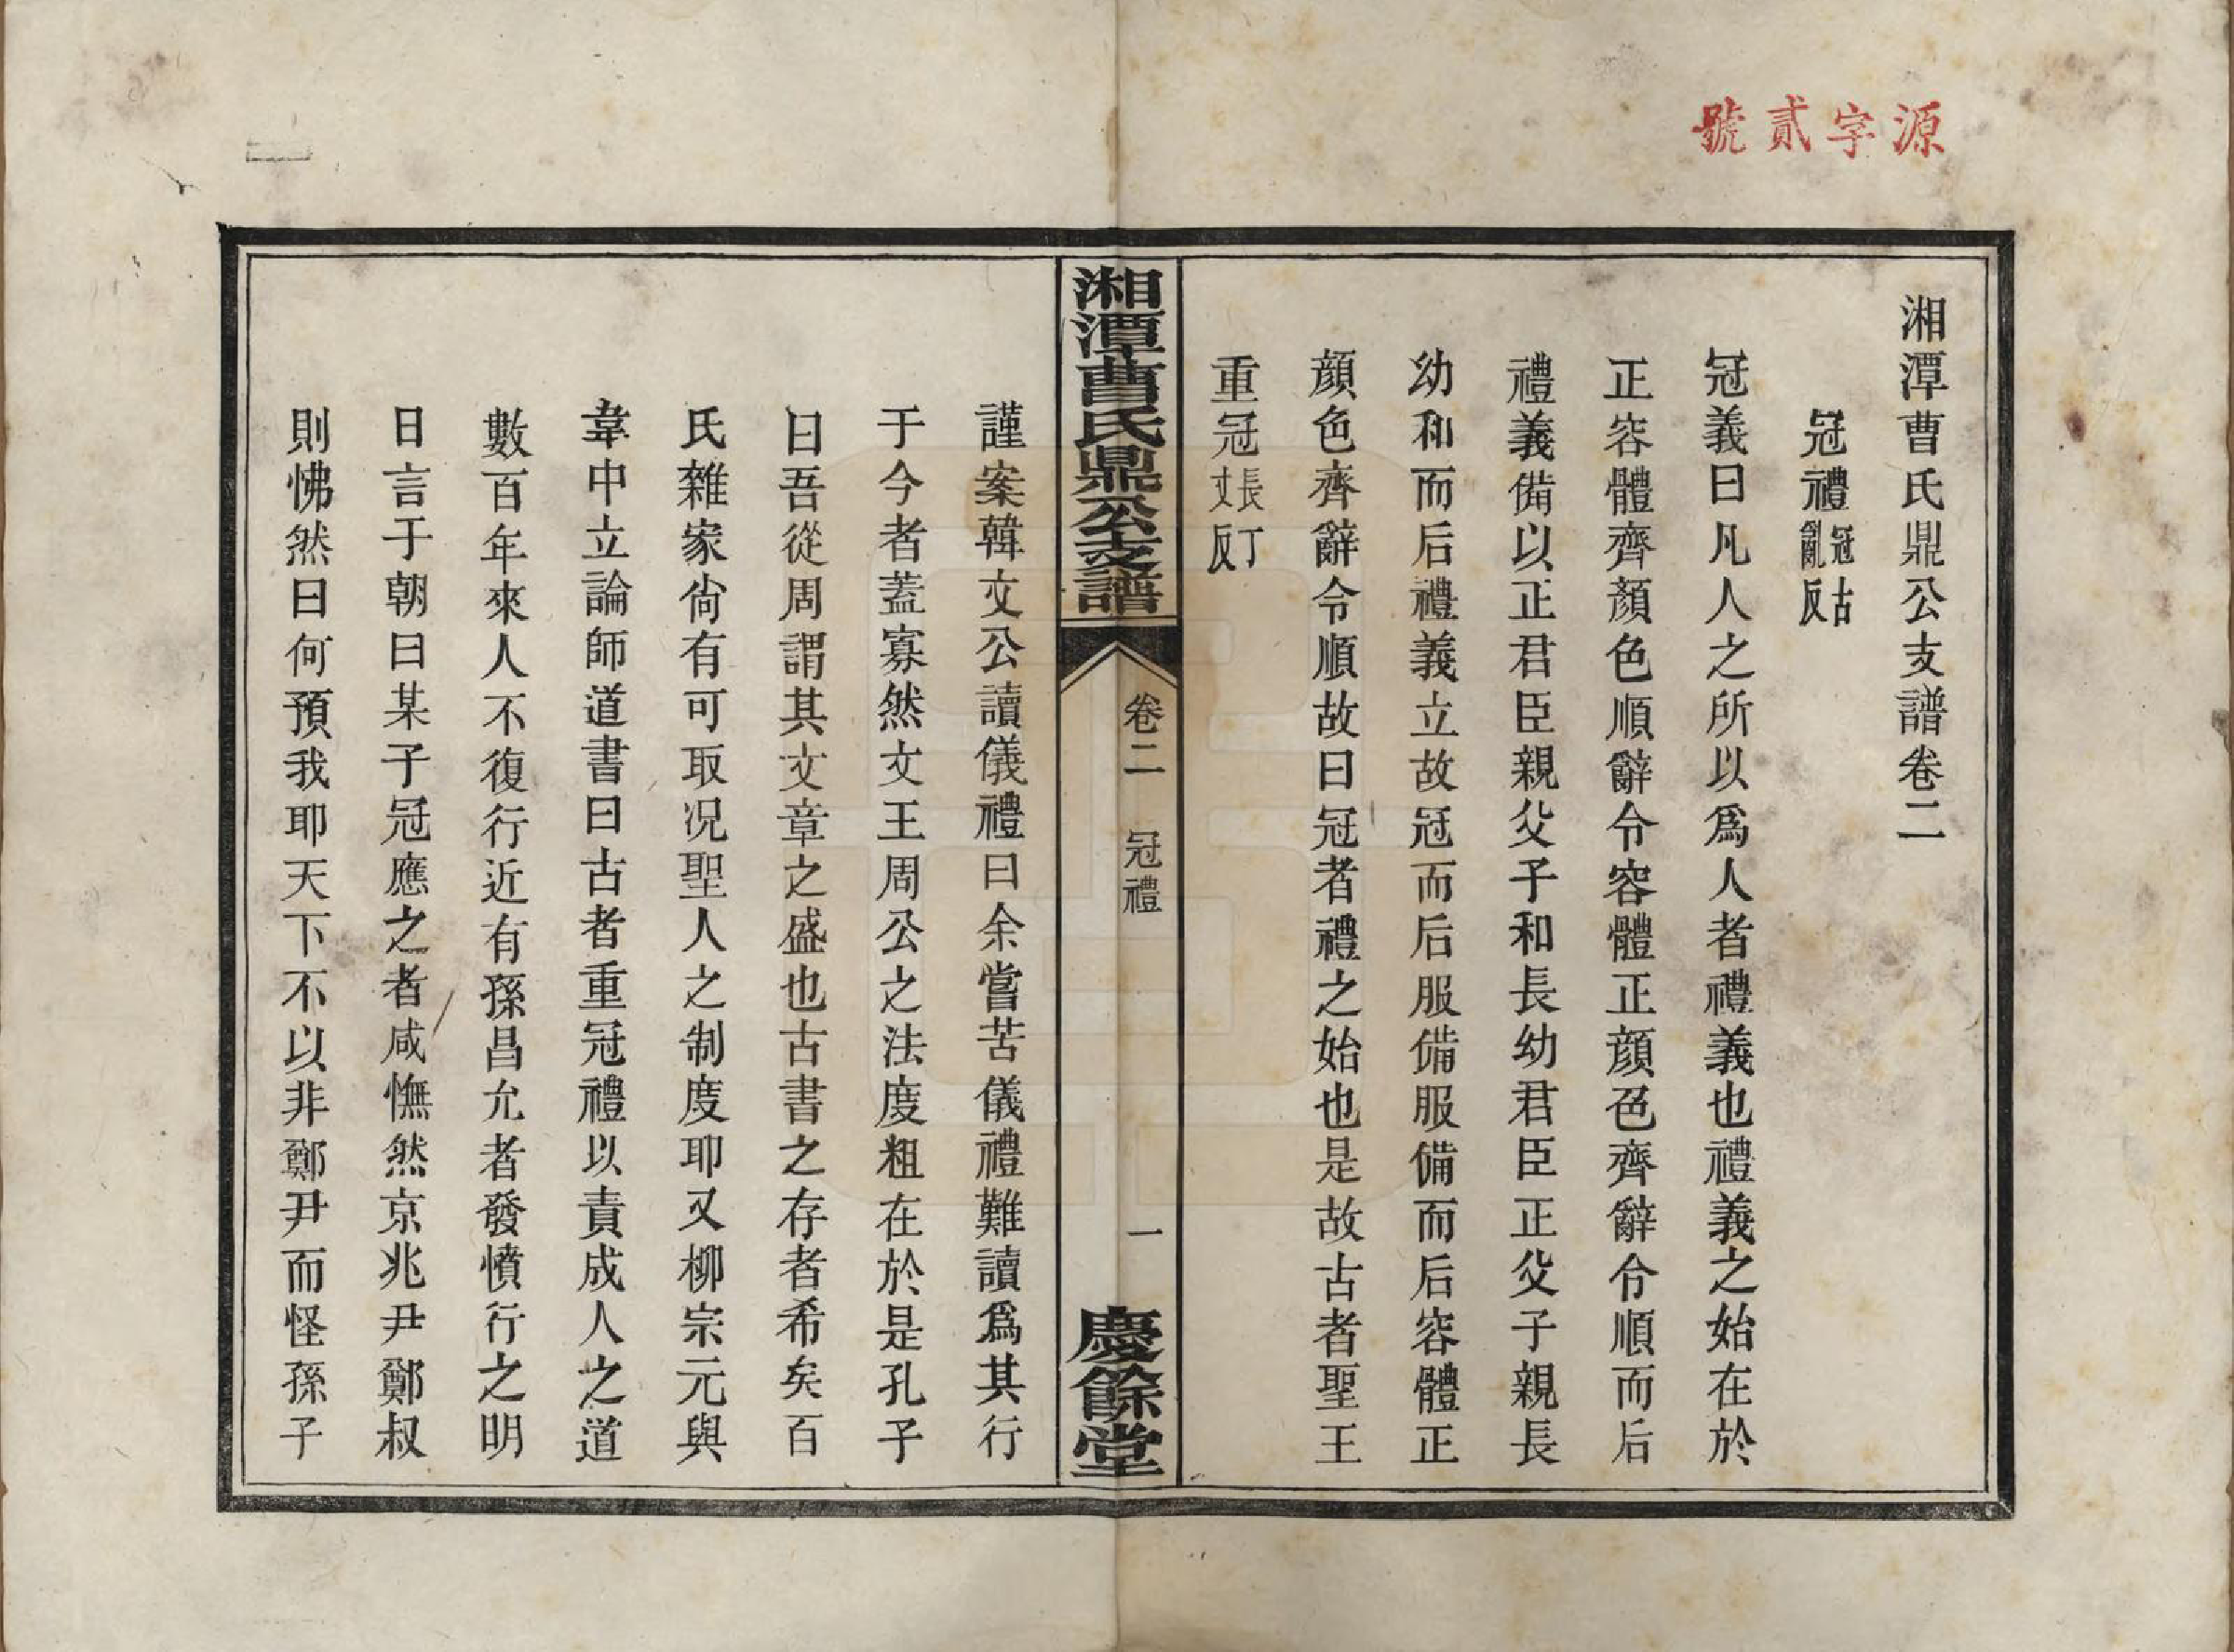 源字貳號
湘潭曹氏鼎公支譜卷二
冠禮冠古亂反
冠義曰凡人之所以爲人者禮義也禮義之始在於
正容體齊顏色順辭令容體正顏色齊辭令順而后
禮義備以正君臣親父子和長幼君臣正父子親長
幼和而后禮義立故冠而后服備服備而后容體正
顏色齊辭令順故曰冠者禮之始也是故古者聖王
重冠長丁丈反
湘潭曹氏鼎公支譜
卷二 冠禮 一
慶餘堂
謹案韓文公讀儀禮曰余嘗苦儀禮難讀爲其行
于今者蓋寡然文王周公之法度粗在於是孔子
曰吾從周謂其文章之盛也古書之存者希矣百
氏雜家尙有可取况聖人之制度耶又柳宗元與
韋中立論師道書曰古者重冠禮以責成人之道
數百年來人不復行近有孫昌允者發憤行之明
日言于朝曰某子冠應之者咸憮然京兆尹鄭叔
則怫然曰何預我耶天下不以非鄭尹而怪孫子